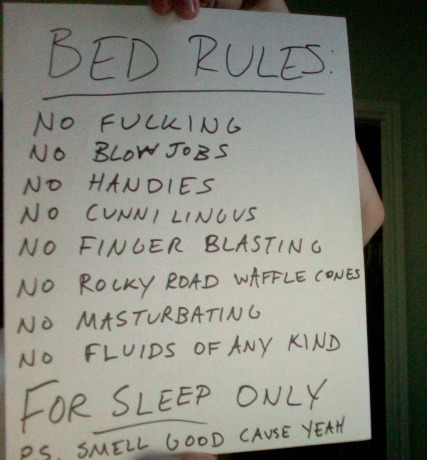 BED RULES:
NO FUCKING
NO BLOWJOBS
NO HANDIES
NO CUNNILINGUS
NO FINGER BLASTING
NO ROCKY ROAD WAFFLE CONES
NO MASTURBATING
NO FLUIDS OF ANY KIND
FOR SLEEP ONLY
P.S. SMELL GOOD CAUSE YEAH